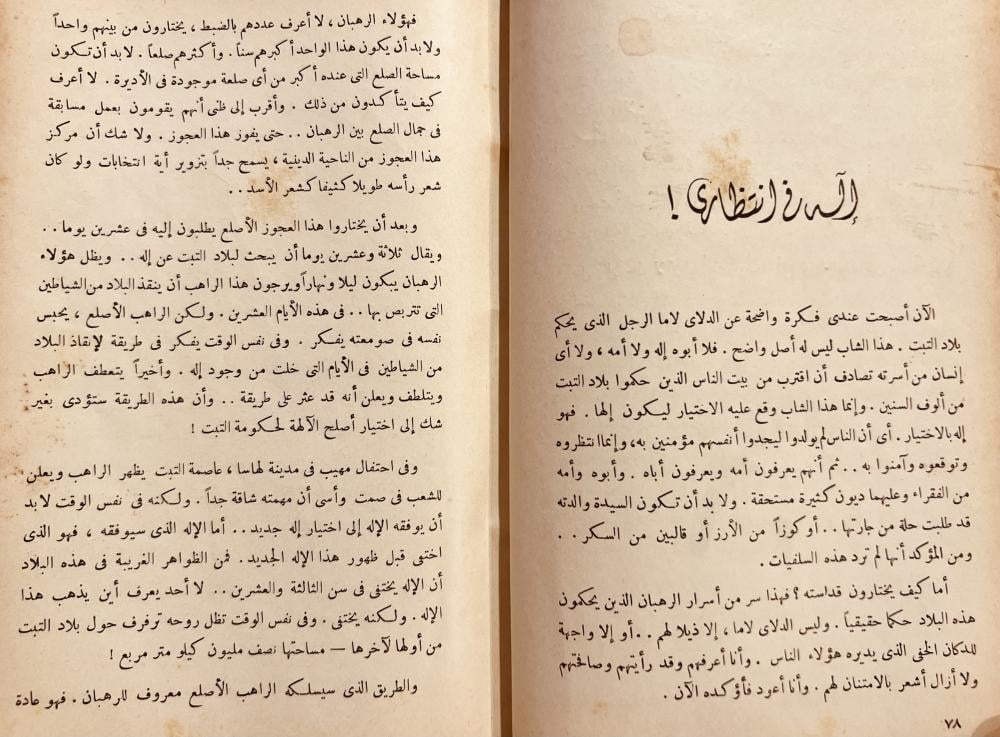 إله في انتظاري !
الآن أصبحت عندى فكرة واضحة عن الدلاى لاما الرجل الذى يحكم
بلاد التبت . هذا الشاب ليس له أصل واضح . فلا أبوه إله ولا أمه ، ولا أى
إنسان من أسرته تصادف أن اقترب من بيت الناس الذين حكموا بلاد التبت
من ألوف السنين . وإنما هذا الشاب وقع عليه الاختيار ليكون إلها . فهو
إله بالاختيار . أى أن الناس لم يولدوا ليجدوا أنفسهم مؤمنين به ، وإنما انتظروه
وتوقعوه وآمنوا به . . ثم أنهم يعرفون أمه ويعرفون أباه . وأبوه وأمه
من الفقراء وعليهما ديون كثيرة مستحقة . ولا بد أن تكون السيدة والدته
قد طلبت حلة من جارتها . . أو كوزاً من الأرز أو قالبين من السكر . .
ومن المؤكد أنها لم ترد هذه السلفيات .
أما كيف يختارون قداسته ؟ فهذا سر من أسرار الرهبان الذين يحكمون
هذه البلاد حكما حقيقياً . وليس الدلاى لاما ، إلا ذيلا لهم . . أو إلا واجهة
للدكان الخفى الذى يديره هؤلاء الناس . وأنا أعرفهم وقد رأيتهم وصافحتهم
ولا أزال أشعر بالامتنان لهم . وأنا أعود فأؤكده الآن .
٧٨
فهؤلاء الرهبان ، لا أعرف عددهم بالضبط ، يختارون من بينهم واحداً
ولابد أن يكون هذا الواحد أكبرهم سناً . وأكثرهم صلعاً . لابد أن تكون
مساحة الصلع التى عنده أكبر من أى صلعة موجودة فى الأديرة . لا أعرف
كيف يتأكدون من ذلك . وأقرب إلى ظنى أنهم يقومون بعمل مسابقة
فى جمال الصلع بين الرهبان . . حتى يفوز هذا العجوز . ولا شك أن مركز
هذا العجوز من الناحية الدينية ، يسمح جداً بتزوير أية انتخابات ولو كان
شعر رأسه طويلا كثيفا كشعر الأسد . .
وبعد أن يختاروا هذا العجوز الأصلع يطلبون إليه فى عشرين يوما . .
ويقال ثلاثة وعشرين يوما أن يبحث لبلاد التبت عن إله . . ويظل هؤلاء
الرهبان يبكون ليلا ونهاراً ويرجون هذا الراهب أن ينقذ البلاد من الشياطين
التى تتربص بها . . فى هذه الأيام العشرين . ولكن الراهب الأصلع ، يحبس
نفسه فى صومعته يفكر . وفى نفس الوقت يفكر فى طريقة لإنقاذ البلاد
من الشياطين فى الأيام التى خلت من وجود إله . وأخيراً يتعطف الراهب
ويتلطف ويعلن أنه قد عثر على طريقة . . وأن هذه الطريقة ستؤدى بغير
شك إلى اختيار أصلح الآلهة لحكومة التبت !
وفى احتفال مهيب فى مدينة لهاسا ، عاصمة التبت يظهر الراهب ويعلن
للشعب فى صمت وأسى أن مهمته شاقة جداً . ولكنه فى نفس الوقت لابد
أن يوفقه الإله إلى اختيار إله جديد . . أما الإله الذى سيوفقه ، فهو الذى
اختفى قبل ظهور هذا الإله الجديد . فمن الظواهر الغريبة فى هذه البلاد
أن الإله يختفى فى سن الثالثة والعشرين . . لا أحد يعرف أين يذهب هذا
الإله . ولكنه يختفى . وفى نفس الوقت تظل روحه ترفرف حول بلاد التبت
من أولها لآخرها — مساحتها نصف مليون كيلو متر مربع !
والطريق الذى سيسلكه الراهب الأصلع معروف للرهبان . فهو عادة